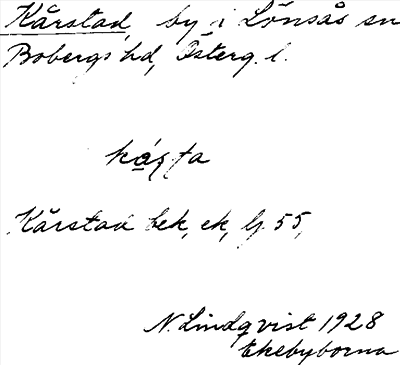 Kårstad, by i Lönsås sn
Bobergs hd, Österg. l.
Kårstad bek, ek, bj. 55,
N. Lindqvist 1928
Ekebyborna